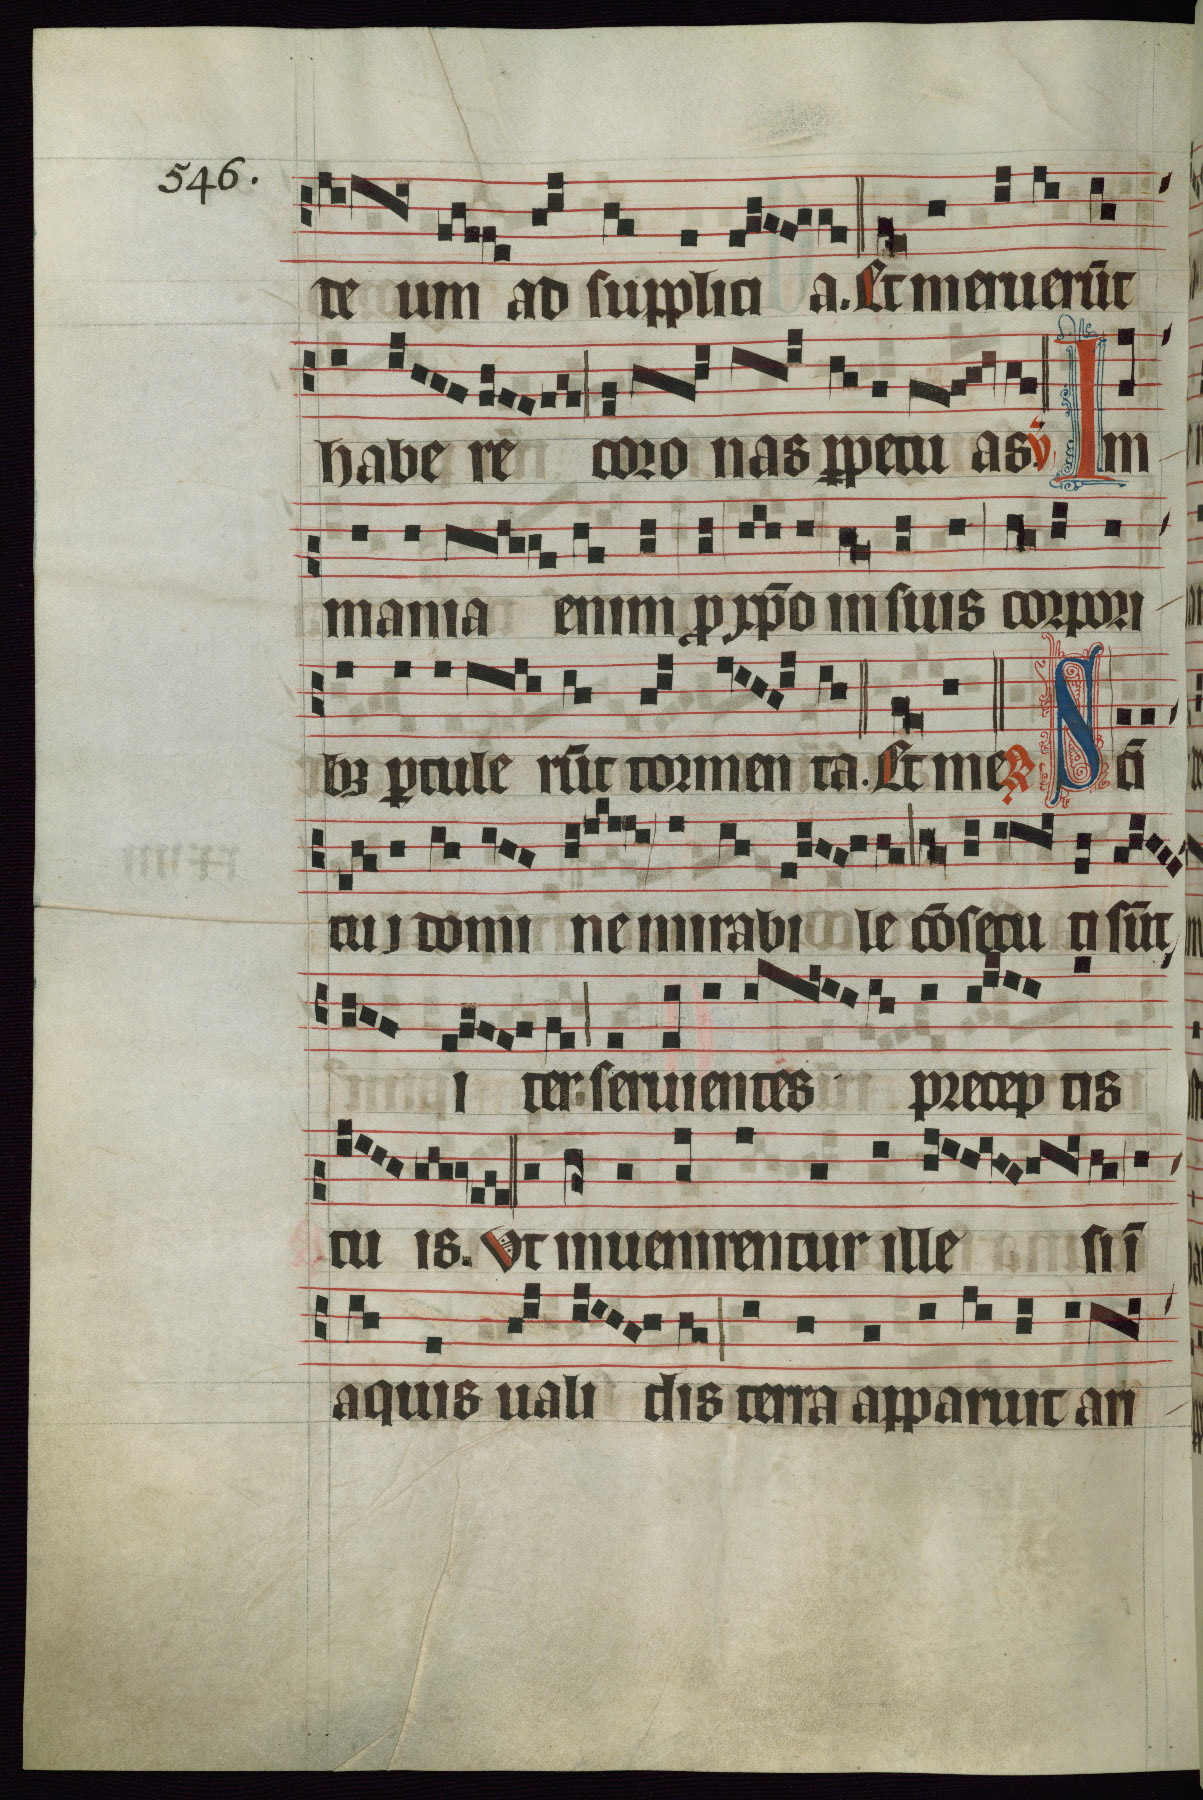 546.
te um ad supplici a. Et meruerūt
habe re coro nas ꝑpetu as ℣ Im
mania enim ꝓ xp̄o in suis corpori
bꝫ ꝑtule rūt tormen ta. Et me ℟ Scī
tui domi ne mirabi le cōsecu ti sūt
i ter: seruientes precep tis
tu is. Vt inuenirentur ille si ī
aquis uali dis terra apparuit ari